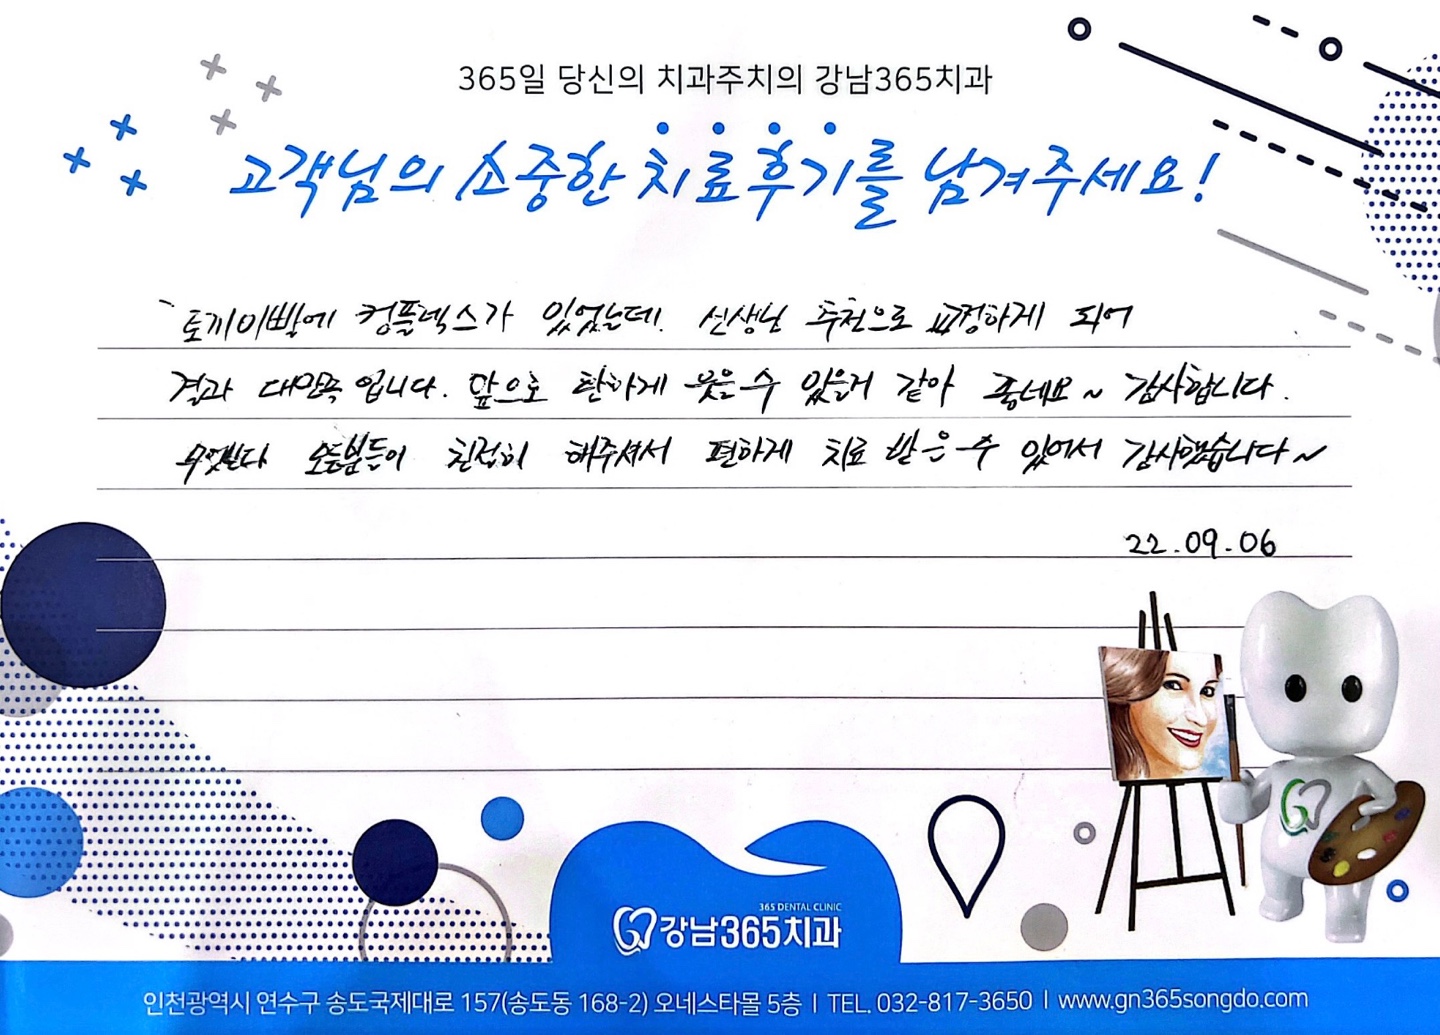 365일 당신의 치과주치의 강남365치과
고객님의 소중한 치료후기를 남겨주세요!
토끼이빨에 컴플렉스가 있었는데. 선생님 추천으로 교정하게 되어
결과 대만족 입니다. 앞으로 환하게 웃을 수 있을거 같아 좋네요~ 감사합니다.
무엇보다 모든분들이 친절히 해주셔서 편하게 치료 받을 수 있어서 감사했습니다~
22.09.06
365 DENTAL CLINIC
강남365치과
인천광역시 연수구 송도국제대로 157(송도동 168-2) 오네스타몰 5층 l TEL. 032-817-3650 l www.gn365songdo.com